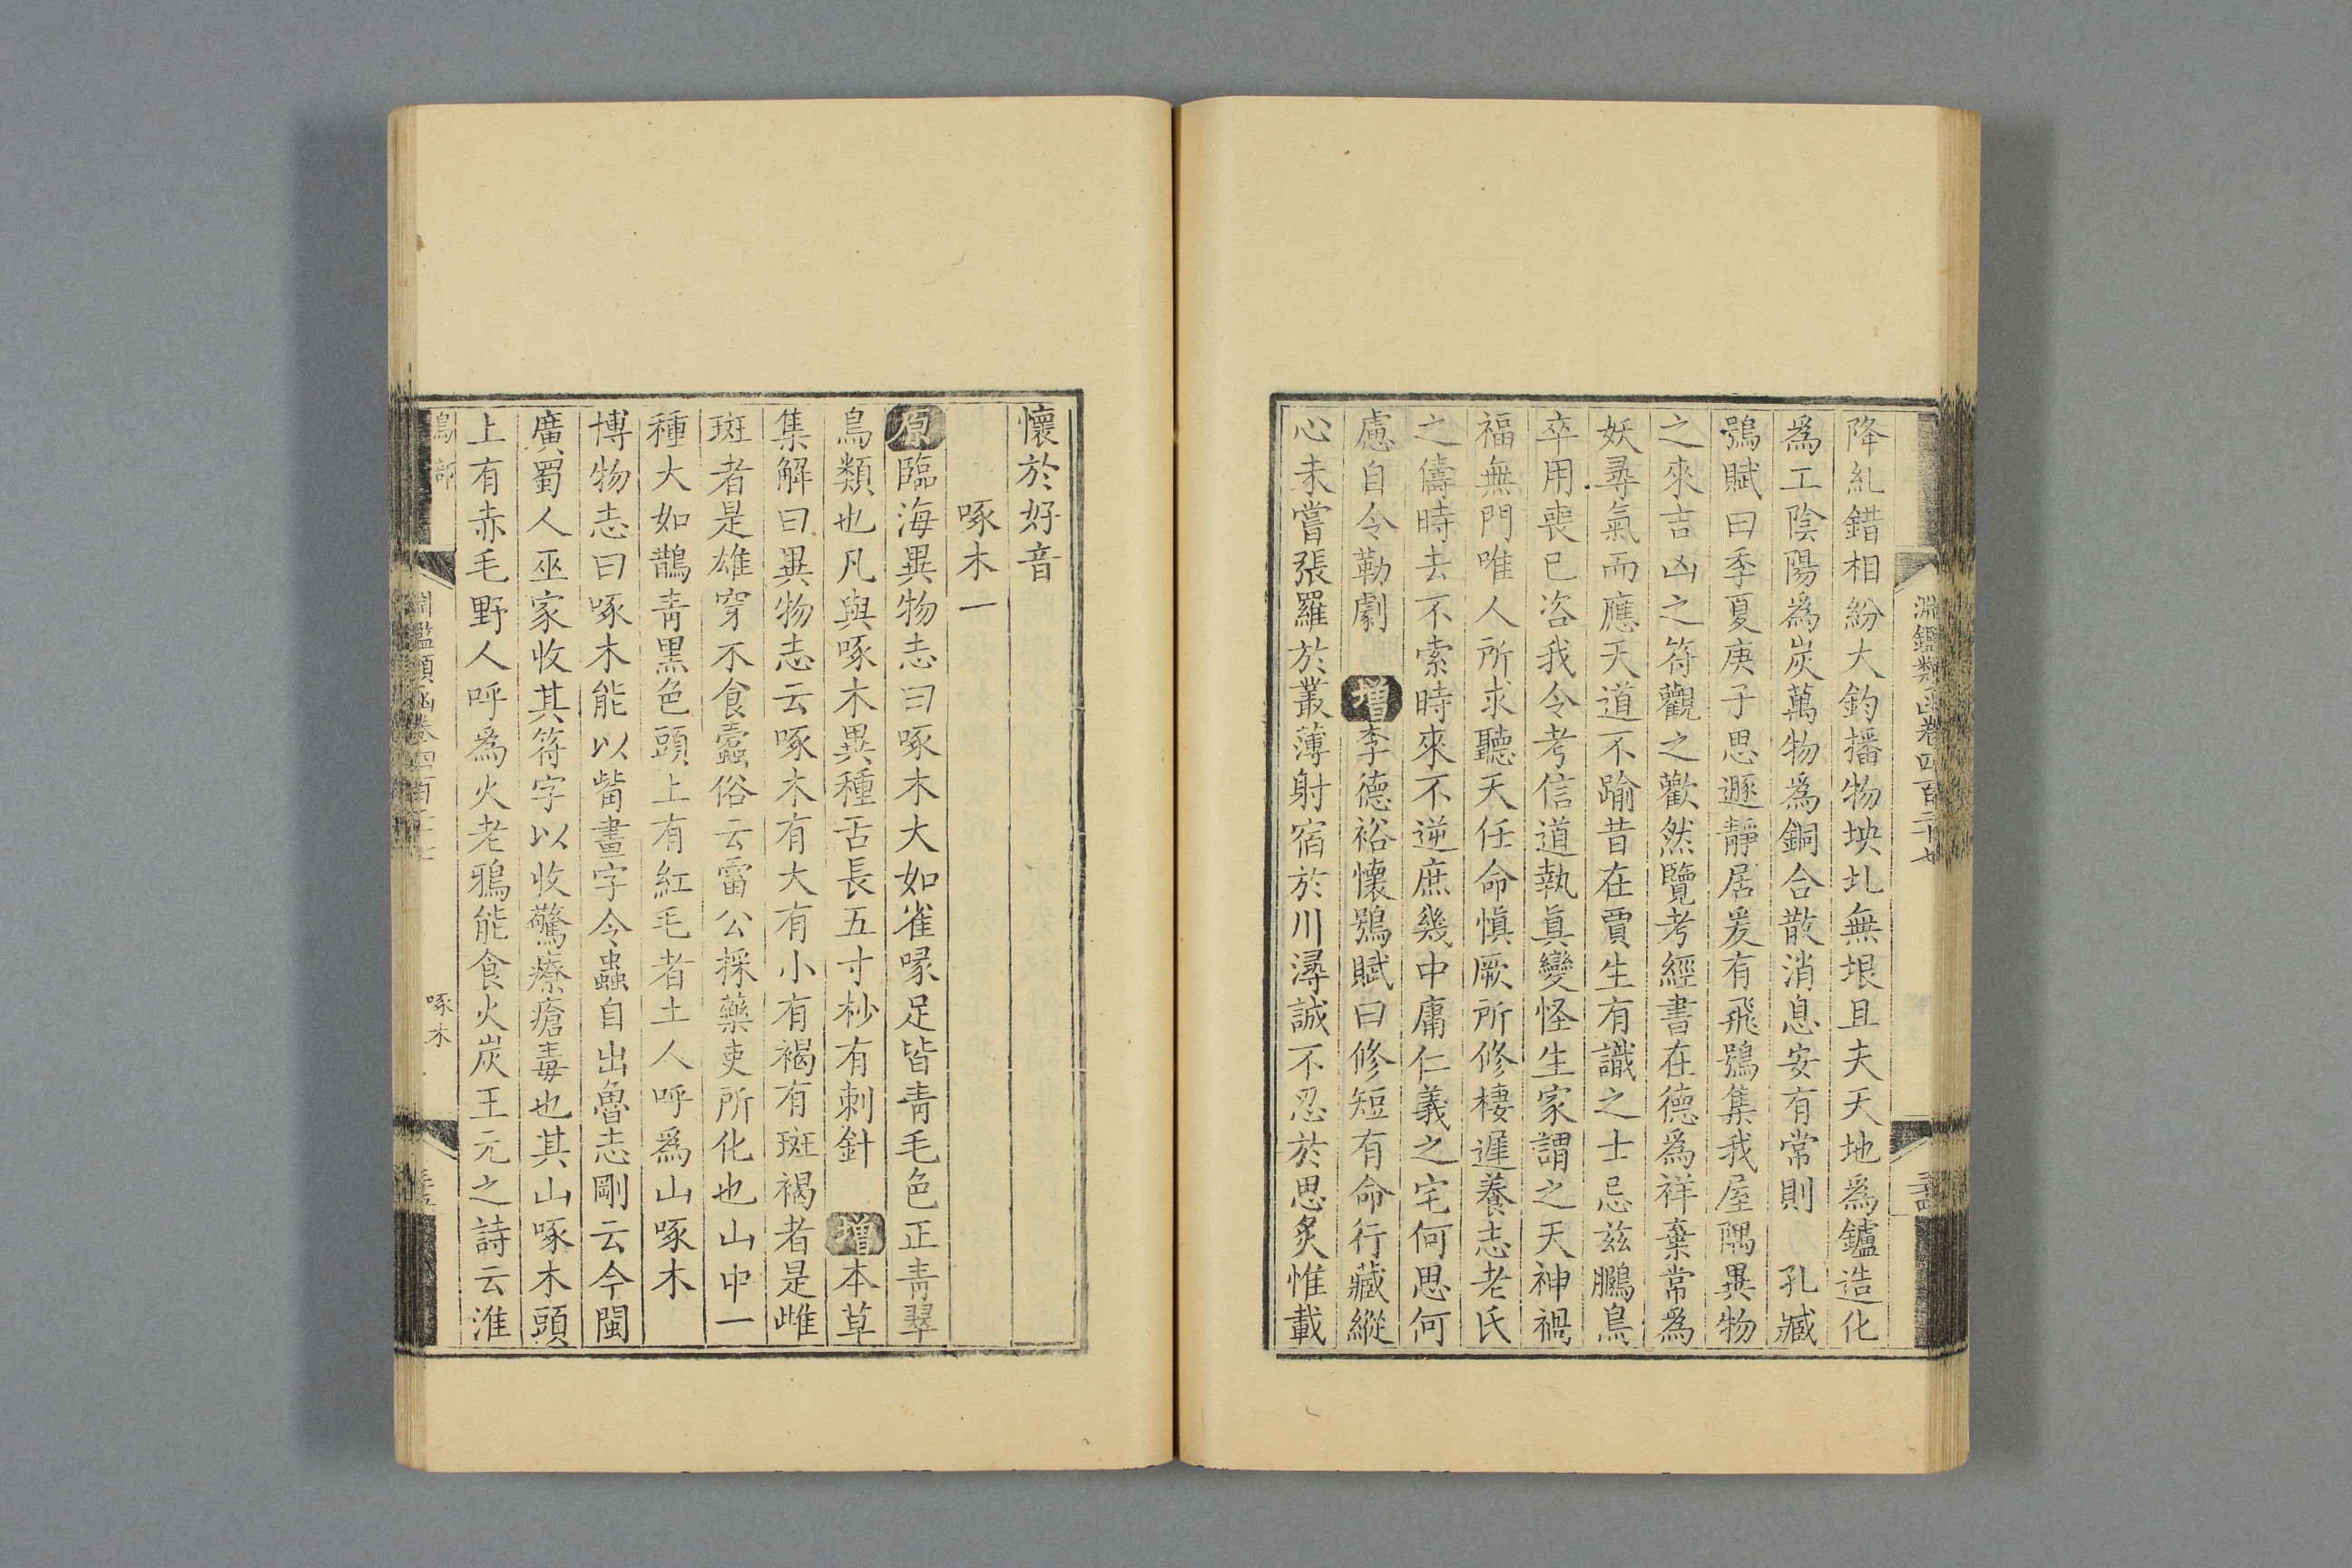 淵鑑類函卷四百二十七
降糺錯相紛大鈞播物坱圠無垠且夫天地為鑪造化
為工陰陽為炭萬物為銅合散消息安有常則　孔臧
鴞賦曰季夏庚子思遯靜居爰有飛鴞集我屋隅異物
之來吉凶之符觀之歡然覽考經書在德為祥棄常為
妖尋氣而應天道不踰昔在賈生有識之士忌茲鵩鳥
卒用喪已咨我令考信道執真變怪生家謂之天神禍
福無門唯人所求聽天任命慎厥所修棲遲養志老氏
之儔時去不索時來不逆庶幾中庸仁義之宅何思何
慮自令勤劇　增李德裕懷鴞賦曰修短有命行藏縱
心未嘗張羅於叢薄射宿於川潯誠不忍於思炙惟載
懷於好音
啄木一
原臨海異物志曰啄木大如雀喙足皆青毛色正青翠
鳥類也凡與啄木異種舌長五寸杪有刺針　增本草
集解曰異物志云啄木有大有小有褐有斑褐者是雌
斑者是雄穿木食蠹俗云雷公採藥吏所化也山中一
種大如鵲青黑色頭上有紅毛者土人呼為山啄木
博物志曰啄木能以觜畫字令蟲自出魯志剛云今閩
廣蜀人巫家收其符字以收驚療瘡毒也其山啄木頭
上有赤毛野人呼為火老鴉能食火炭王元之詩云淮
鳥部
淵鑑類函卷四百二十七
啄木